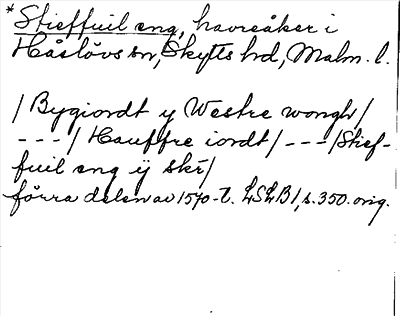 *Stieffuil eng, havreåker i
Håslövs sn, Skytts hd, Malm. l.
/ Bygiordt y Westre wongh /
---/ Hauffre iordt / ---/ Stief-
fuil eng ÿ skr̄ /
förra delen av 1570-t. LSLB 1, s. 350. orig.